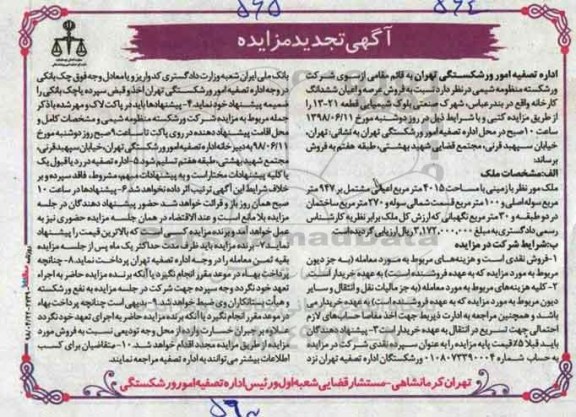 ۵۶۵
۵۶۴
آگهی تجدید مزایده
اداره تصفیه امور ورشکستگی تهران به قائم مقامی از سوی شرکت
ورشکسته منظومه شیمی در نظر دارد نسبت به فروش عرصه و اعیان ششدانگ
کارخانه واقع در بندرعباس، شهرک صنعتی بلوک شیمیایی قطعه ۲۱-۱۳ را
از طریق مزایده کتبی و با شرایط ذیل در روز دوشنبه مورخ ۱۳۹۸/۰۶/۱۱
ساعت ۱۰ صبح در محل اداره تصفیه امور ورشکستگی تهران به نشانی: تهران،
خیابان سپهبد قرنی، مجتمع قضایی شهید بهشتی، طبقه هفتم به فروش
برساند:
الف: مشخصات ملک
ملک مور نظر با زمینی با مساحت ۴۰۱۵ متر مربع اعیانی مشتمل بر ۹۴۷ متر
مربع سوله اصلی و ۱۰۰ متر مربع قسمت شمالی سوله و ۲۷۰ متر مربع ساختمان
در دو طبقه و ۳۰ متر مربع نگهبانی که ارزش کل ملک برابر نظریه کارشناس
رسمی دادگستری به مبلغ ۳,۱۷۲,۰۰۰,۰۰۰ ریال ارزیابی گردیده است.
ب: شرایط شرکت در مزایده
۱-فروش نقدی است و هزینه‌های مربوط به مورد معامله (به جز دیون
مربوط به مورد مزایده که به عهده فروشنده است) به عهده خریدار است
۲-کلیه هزینه‌های مربوط به مورد معامله (به جز مالیات نقل و انتقال و سایر
دیون مربوط به مورد مزایده که به عهده فروشنده است) به عهده خریدار می
باشد و همچنین مراجعه به ادارت ذیربط جهت اخذ مفاصا حساب‌های لازم
احتمالی جهت تسریع در انتقال به عهده خریدار است ۳- پیشنهاد دهندگان
باید قبلا ۵٪ قیمت پایه مزایده را به عنوان سپرده نقدی شرکت در مزایده
به حساب شماره ۰۱۰۸۰۷۲۳۹۰۰۰۴ ورشکستگان اداره تصفیه تهران نزد
بانک ملی ایران شعبه وزارت دادگستری کد واریز و یا معادل وجه فوق چک بانکی
در وجه اداره تصفیه امور ورشکستگی تهران اخذ و قبض سپرده یا چک بانکی را
ضمیمه پیشنهاد خود نماید ۴- پیشنهادها باید در پاکت لاک و مهر شده با ذکر
جمله مربوط به مزایده شرکت ورشکسته منظومه شیمی و مشخصات کامل و
محل اقامت پیشنهاد دهنده در روی پاکت تا ساعت ۹ صبح روز دوشنبه مورخ
۹۸/۰۶/۱۱ به دبیرخانه اداره تصفیه امور ورشکستگی تهران، خیابان سپهبد قرنی،
مجتمع شهید بهشتی، طبقه هفتم تسلیم شود ۵-اداره تصفیه در رد یا قبول یک
یا کلیه پیشنهادات مختار است و به پیشنهادات مبهم، مشروط، فاقد سپرده و بر
خلاف شرایط این آگهی ترتیب اثر داده نخواهد شد ۶-پیشنهادها در ساعت ۱۰
صبح همان روز باز و قرائت خواهد شد حضور پیشنهاد دهندگان در جلسه
مزایده بلا مانع است و عند الاقتضاء در همان جلسه مزایده حضوری نیز به
عمل خواهد آمد و برنده مزایده کسی است که بالاترین قیمت را پیشنهاد
نماید ۷- برنده مزایده باید ظرف مدت حداکثر یک ماه پس از جلسه مزایده
بقیه ثمن معامله را در وجه اداره تصفیه تهران پرداخت نماید ۸- چنانچه
پرداخت بهاء در موعد مقرر انجام نگیرد یا آنکه برنده مزایده حاضر به اجراء
تعهد خود نگردد وجه سپرده جهت شرکت در جلسه مزایده به نفع ورشکسته
و هیأت بستانکاران وی ضبط خواهد شد. ۹- بدیهی است چنانچه پرداخت بهاء
در موعد مقرر انجام نگیرد یا آنکه برنده مزایده حاضر به اجرای تعهد خود نگردد
علاوه بر جبران خسارت وارده از محل وجه تودیعی نسبت به فروش مورد
مزایده از طریق مزایده مجدد اقدام خواهد شد. ۱۰- متقاضیان برای کسب
اطلاعات بیشتر می توانند به اداره تصفیه مراجعه نمایند.
تهران کرمانشاهی-مستشار قضایی شعبه اول و رئیس اداره تصفیه امور ورشکستگی